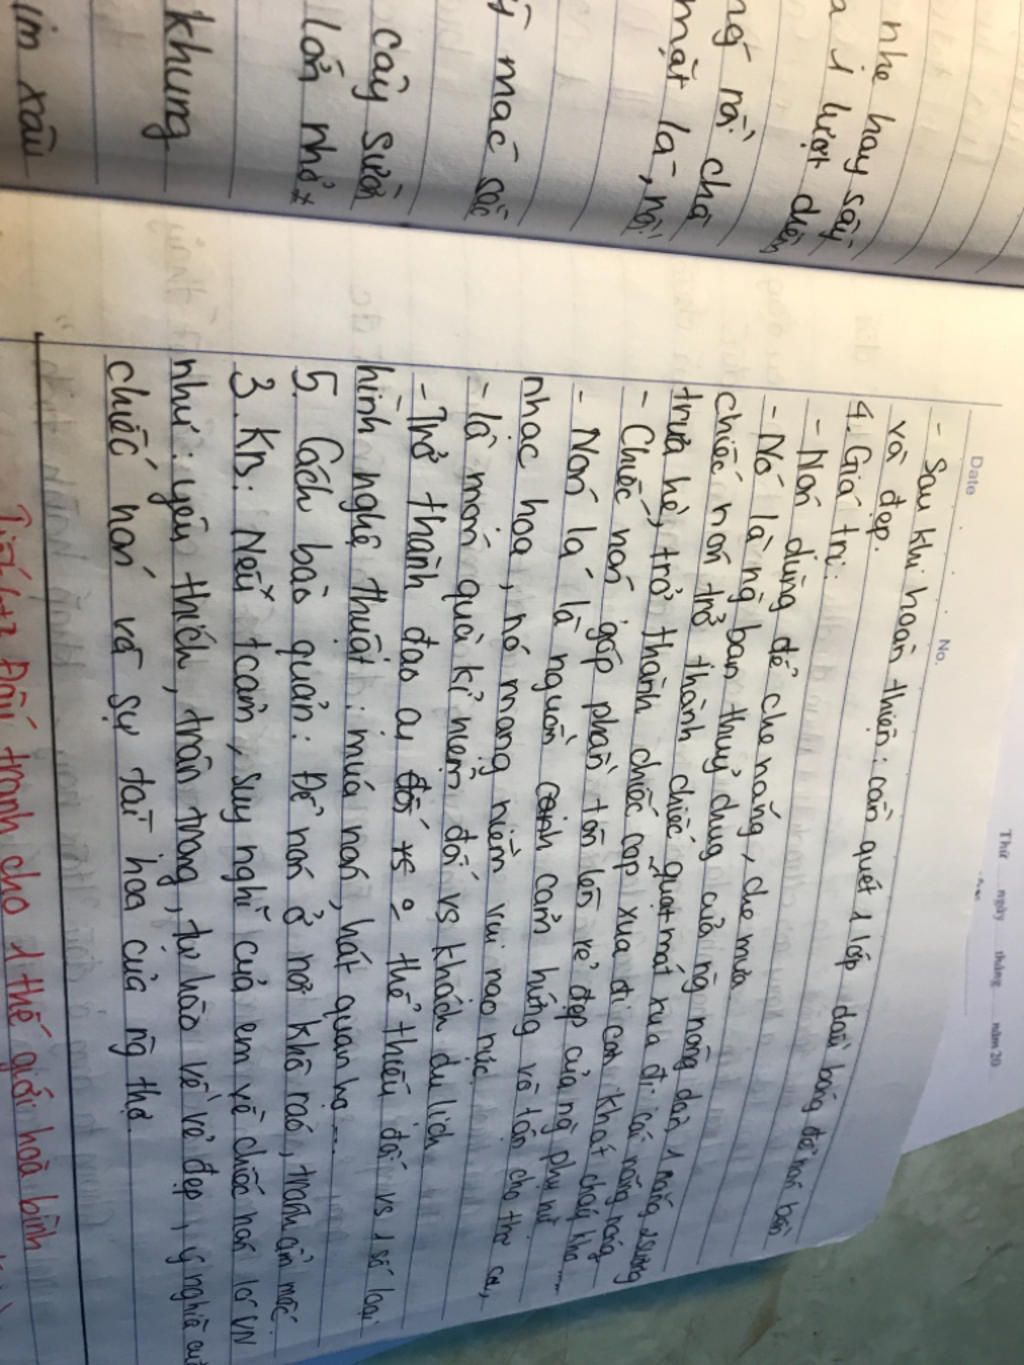 nhẹ hay sấy
a 1 lượt diêm
ng rồi chà
mặt lá, nối
mác sắc
cây sườn
lớn nhỏ x
khung
im xâu
Date
No.
Thứ ngày tháng năm 20
- Sau khi hoàn thiện: cần quét 1 lớp dầu bóng để nón bền
và đẹp.
4. Giá trị:
- Nón dùng để che nắng, che mưa
- Nó là ng bạn thuỷ chung của ng nông dân, 1 nắng 2 sương
chiếc nón trở thành chiếc quạt mát xua đi cái nắng nóng
trưa hè, trở thành chiếc cốp xua đi cơn khát cháy khô....
- Chiếc nón góp phần tôn lên vẻ đẹp của ng phụ nữ
- Nón lá là nguồn cảm hứng vô tận cho thơ ca,
nhạc hoạ, nó mang niềm vui nao nức
- là món quà kỉ niệm đối vs khách du lịch
- Trở thành đạo cụ 0 thể thiếu đối vs 1 số loại
hình nghệ thuật: múa nón, hát quan họ...
5. Cách bảo quản: Để nón ở nơi khô ráo, tránh ẩm mốc.
3. KB: Nêu tcảm, suy nghĩ của em về chiếc nón lá VN
như: yêu thích, trân trọng, tự hào về vẻ đẹp, ý nghĩa của
chiếc nón và sự tài hoa của ng thợ
Đấu tranh cho 1 thế giới hoà bình